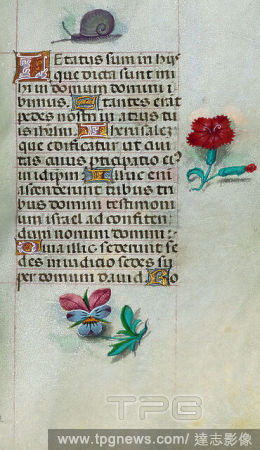 Letatus sum in hijs
que dicta sunt mi
hi in domum domini i
bimus. Stantes erāt
pedes nostri in atrijs tu
is ihrlm. Iherusalez
que edificatur ut civi
tas cuius pticipatio ei9
in idipm: Illuc eni
ascenderunt tribus tri
bus domini testimoni
um israel ad confiten
dum nomini domini:
Quia illic sederunt se
des in iudicio sedes su
per domum dauid. Ro
TPG
www.tpgnews.com / 達志影像